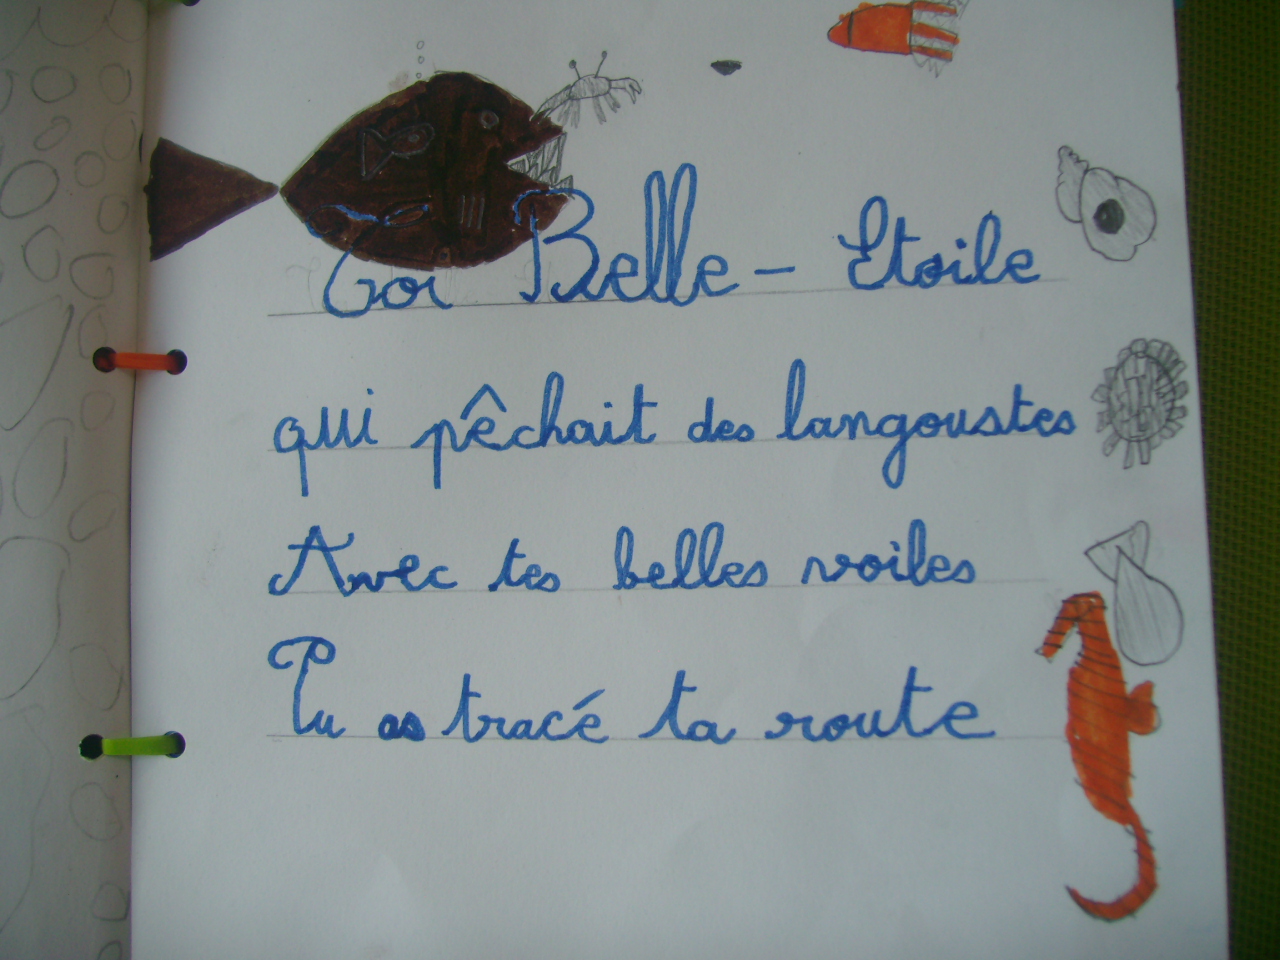 Toi Belle - Etoile
qui pêchait des langoustes
Avec tes belles voiles
Tu as tracé ta route